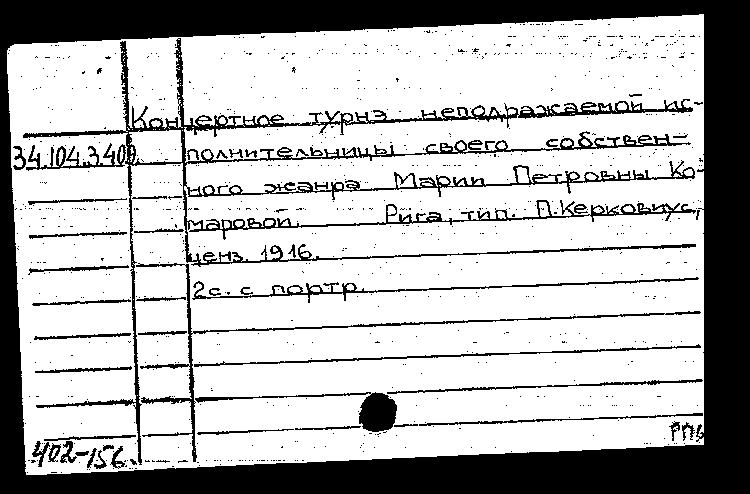 Концертное турнэ неподражаемой ис-
34.104.3.409. полнительницы своего собствен-
ного жанра Марии Петровны Ко-
маровой. Рига, тип. П.Керковиус,
ценз. 1916.
2с. с портр.
402-156.